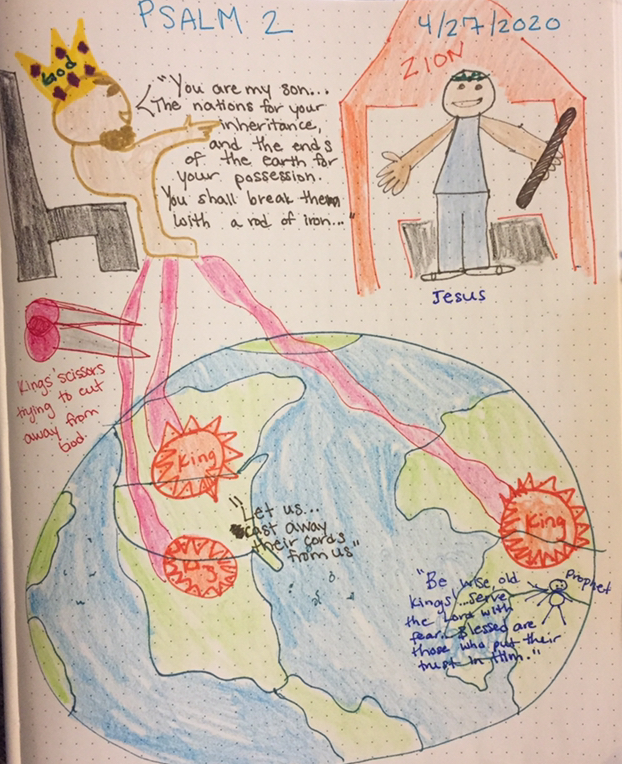 PSALM 2
4/27/2020
God
"You are my son...
The nations for your
inheritance,
and the ends
of the earth for
your possession.
You shall break them
with a rod of iron..."
ZION
Jesus
Kings' scissors
trying to cut
away from
God
King
King
King
"Let us...
cast away
their cords
from us"
"Be wise, old
Kings'...serve
the Lord with
fear. Blessed are
those who put their
trust in Him."
Prophet